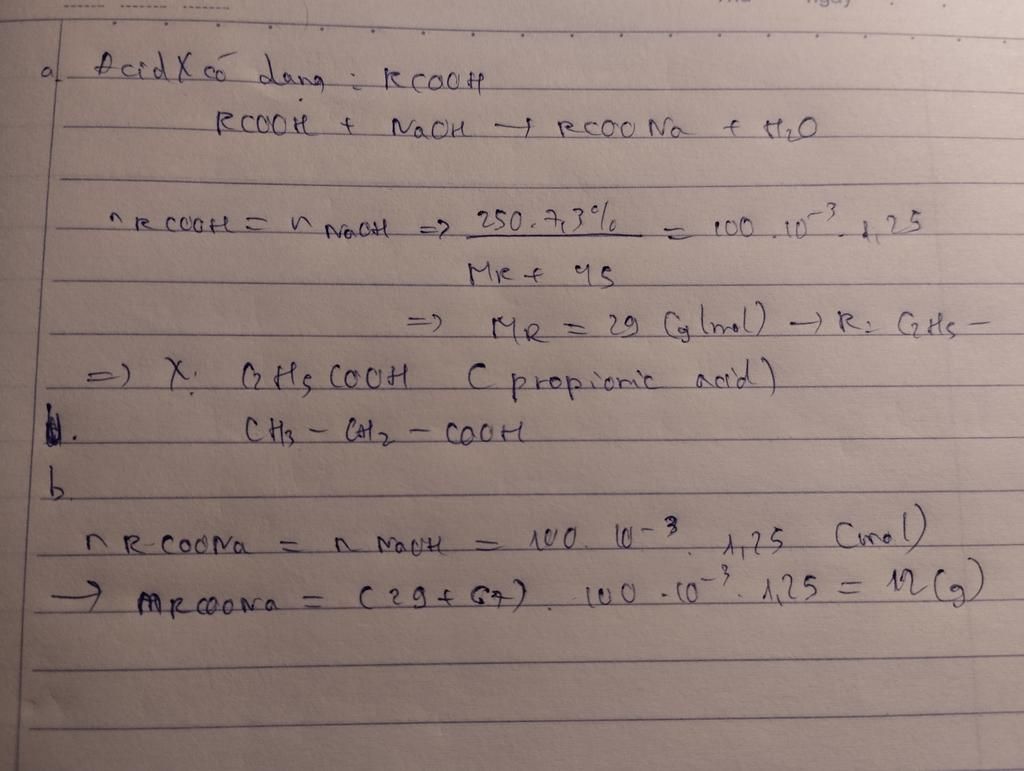 a) Acid X có dạng : RCOOH
RCOOH + NaOH → RCOONa + H2O
n RCOOH = n NaOH => 250.7,3% / MR + 45 = 100 . 10^-3 . 1,25
=> MR = 29 (g/mol) → R: C2H5 -
=> X: C2H5COOH (propionic acid)
CH3 - CH2 - COOH
b.
n RCOONa = n NaOH = 100 . 10^-3 . 1,25 (mol)
→ mRCOONa = (29 + 67) . 100 . 10^-3 . 1,25 = 12 (g)